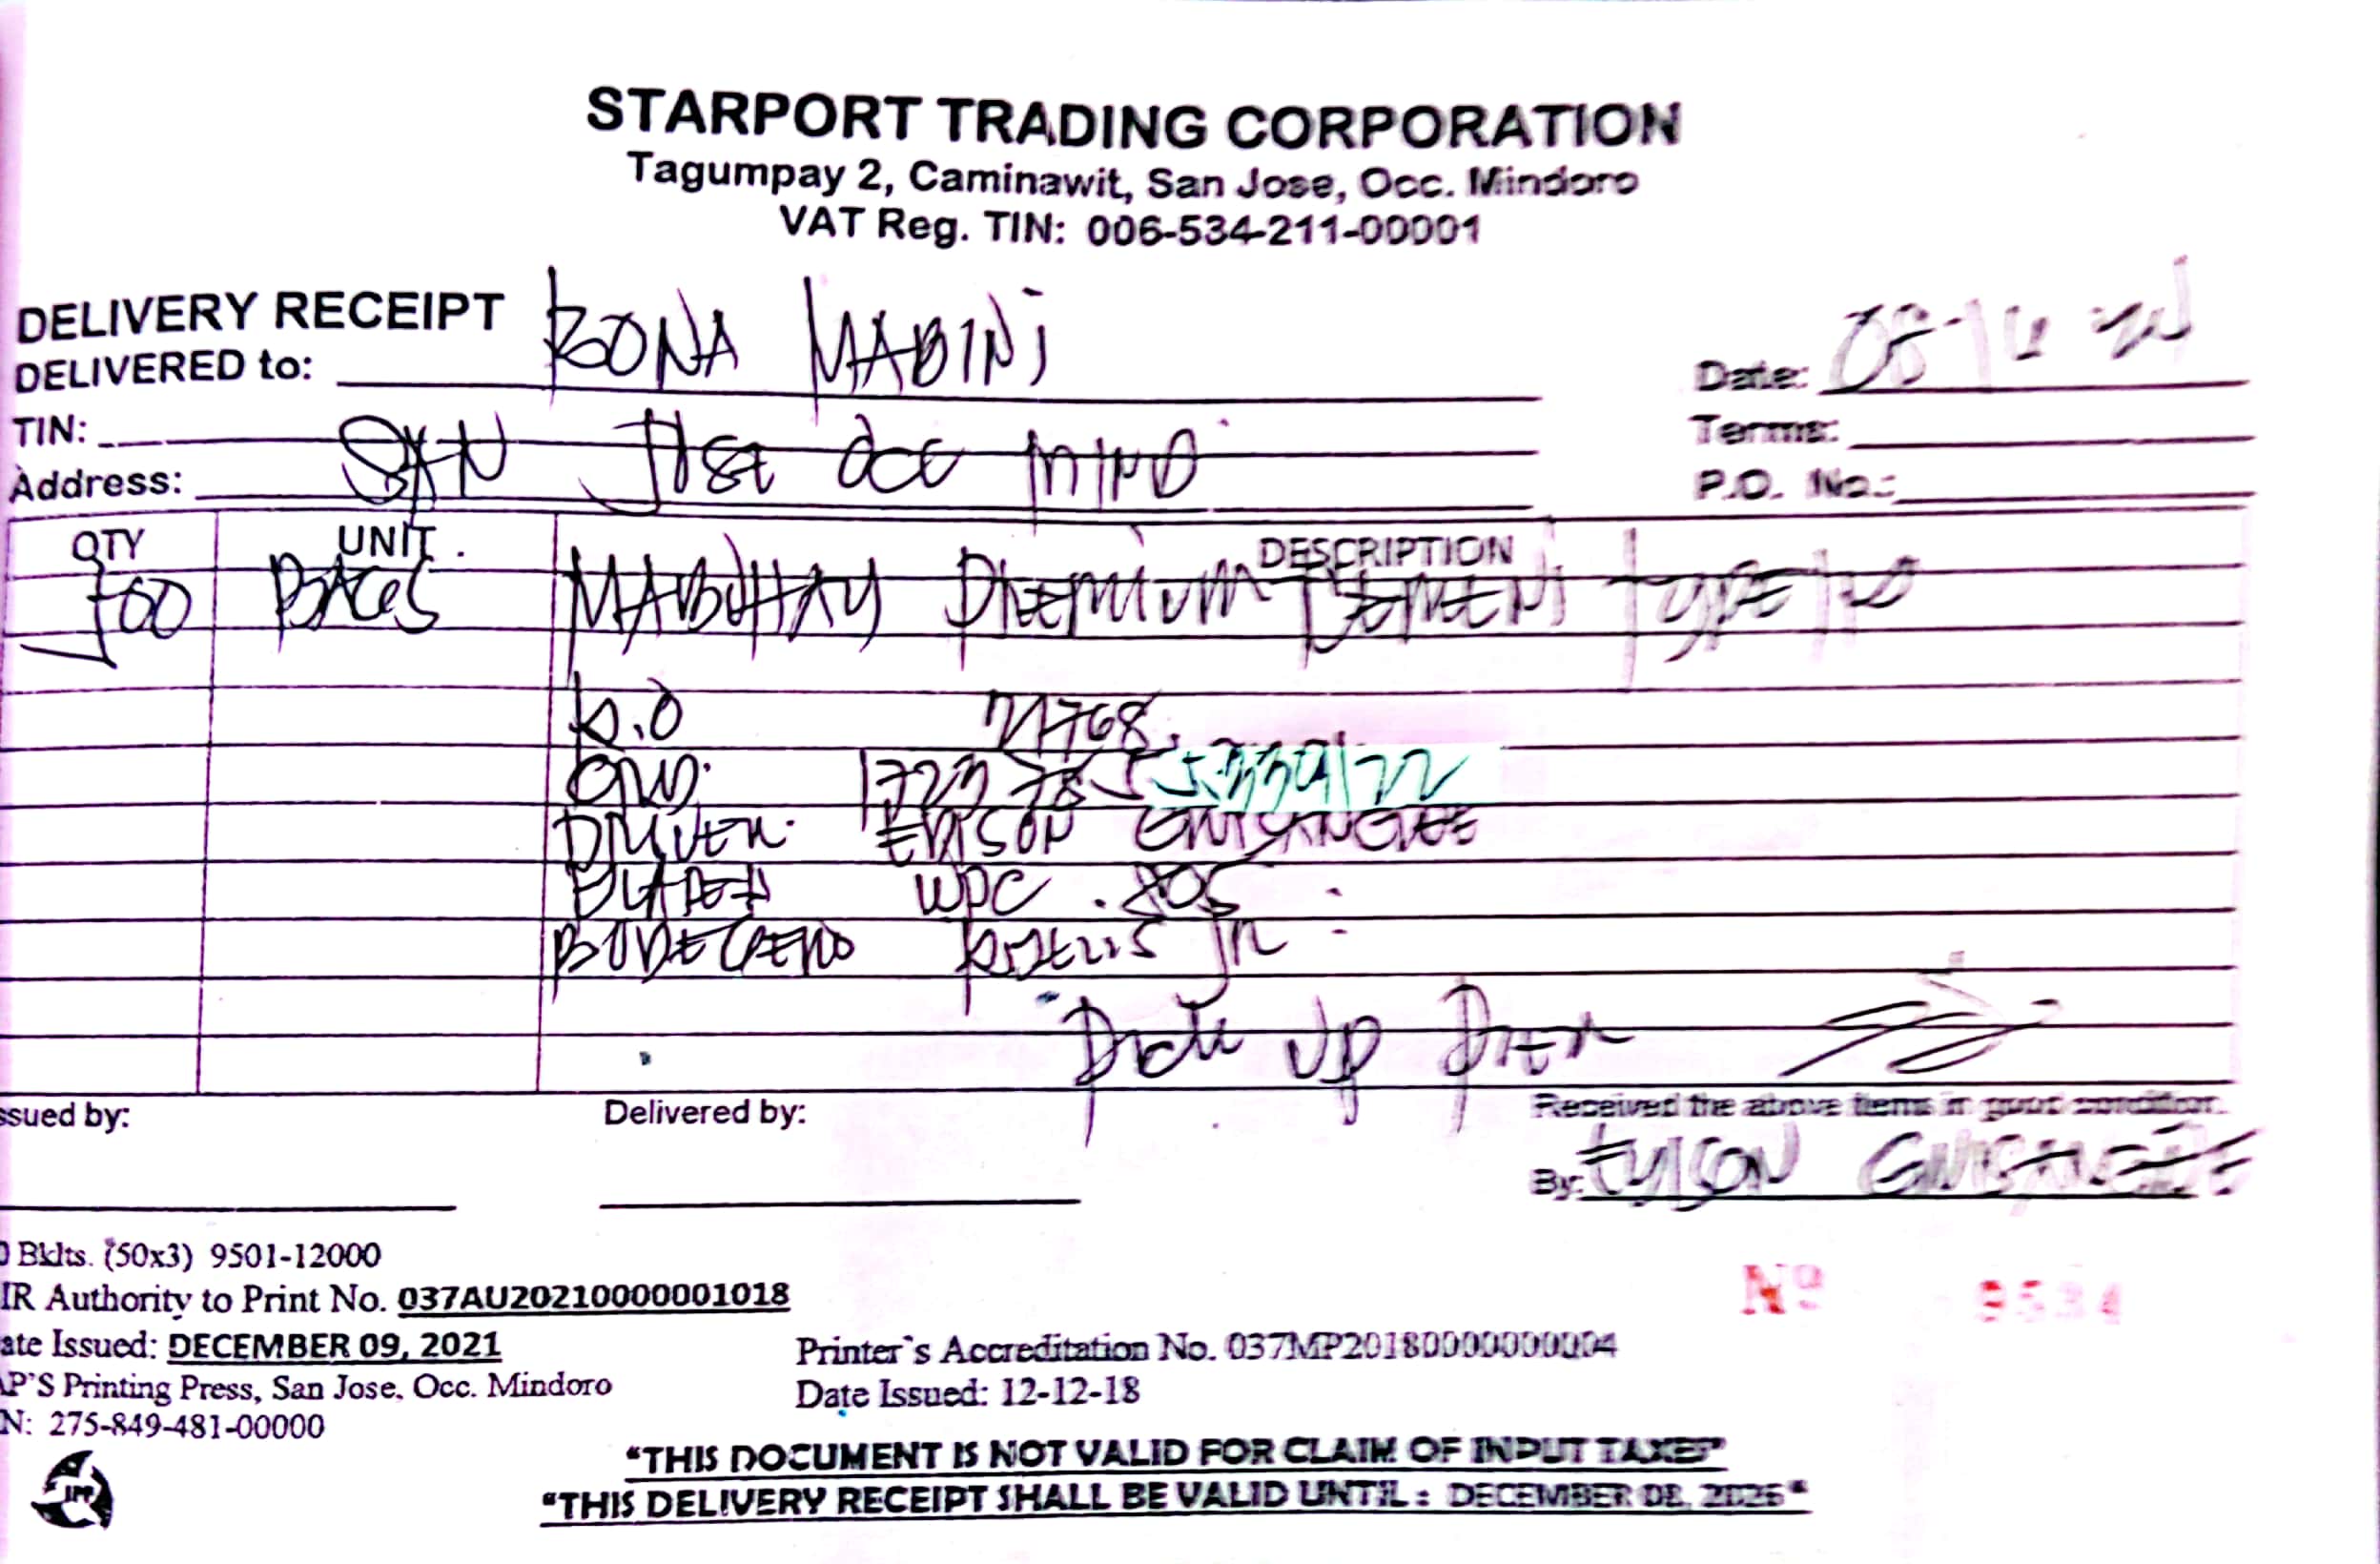 STARPORT TRADING CORPORATION
Tagumpay 2, Caminawit, San Jose, Occ. Mindoro
VAT Reg. TIN: 006-534-211-00001
DELIVERY RECEIPT
DELIVERED to: BONA MABINI
Date:
TIN:
Terms:
Address: SAN JOSE OCC MIND
P.O. No.:
QTY UNIT DESCRIPTION
700 BAGS MABUHAY PREMIUM CEMENT TYPE
21768
DRIVER: EDISON
WPC 805
BODEGERO JR
PICK UP
ssued by:
Delivered by:
Received the above items in good condition.
By:
Bklts. (50x3) 9501-12000
IR Authority to Print No. 037AU20210000001018
ate Issued: DECEMBER 09, 2021
P'S Printing Press, San Jose, Occ. Mindoro
N: 275-849-481-00000
Printer's Accreditation No. 037MP20180000000004
Date Issued: 12-12-18
Nº 9534
"THIS DOCUMENT IS NOT VALID FOR CLAIM OF INPUT TAXES"
"THIS DELIVERY RECEIPT SHALL BE VALID UNTIL : DECEMBER 08, 2026"